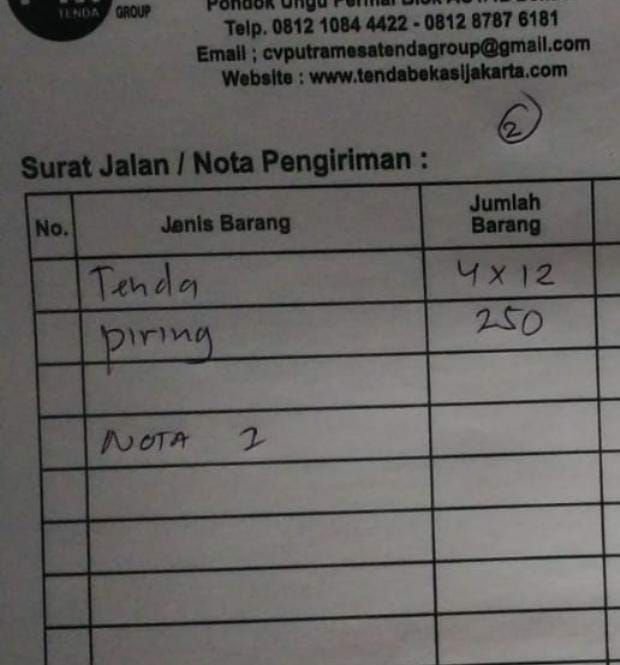 TENDA GROUP
Telp. 0812 1084 4422 - 0812 8787 6181
Email ; cvputramesatendagroup@gmail.com
Website : www.tendabekasijakarta.com
2
Surat Jalan / Nota Pengiriman :
No. Jenis Barang Jumlah Barang
Tenda 4 x 12
piring 250
NOTA 2